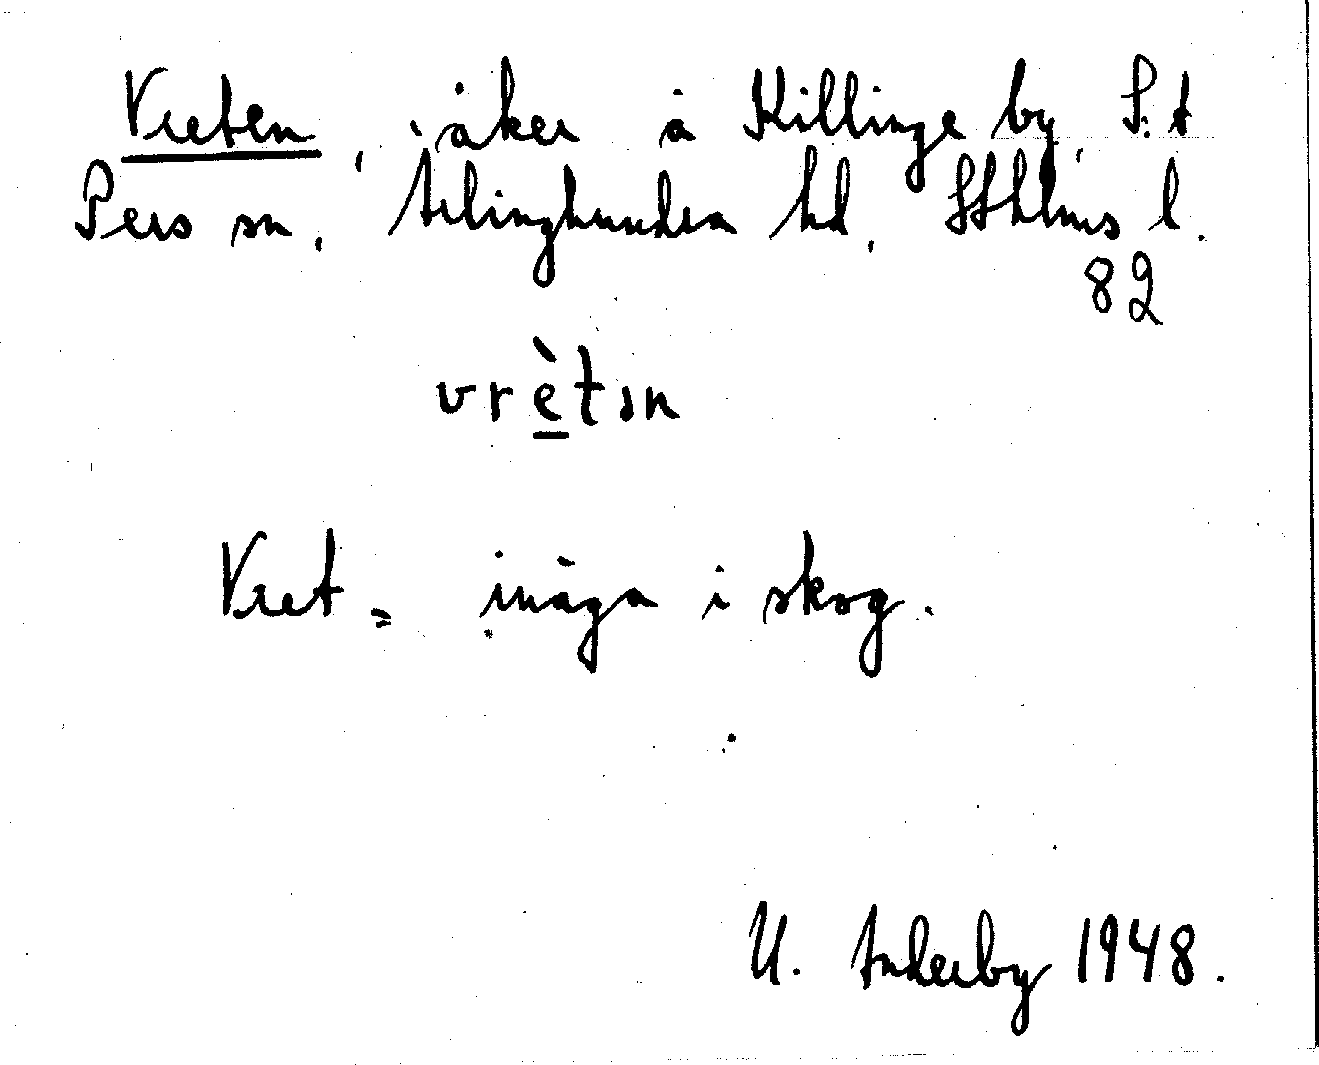 Vreten, åker å Killinge by, S:t
Pers sn, Ärlinghundra hd, Sthlms l.
82
vrètən
Vret = inäga i skog.
U. Anderby 1948.